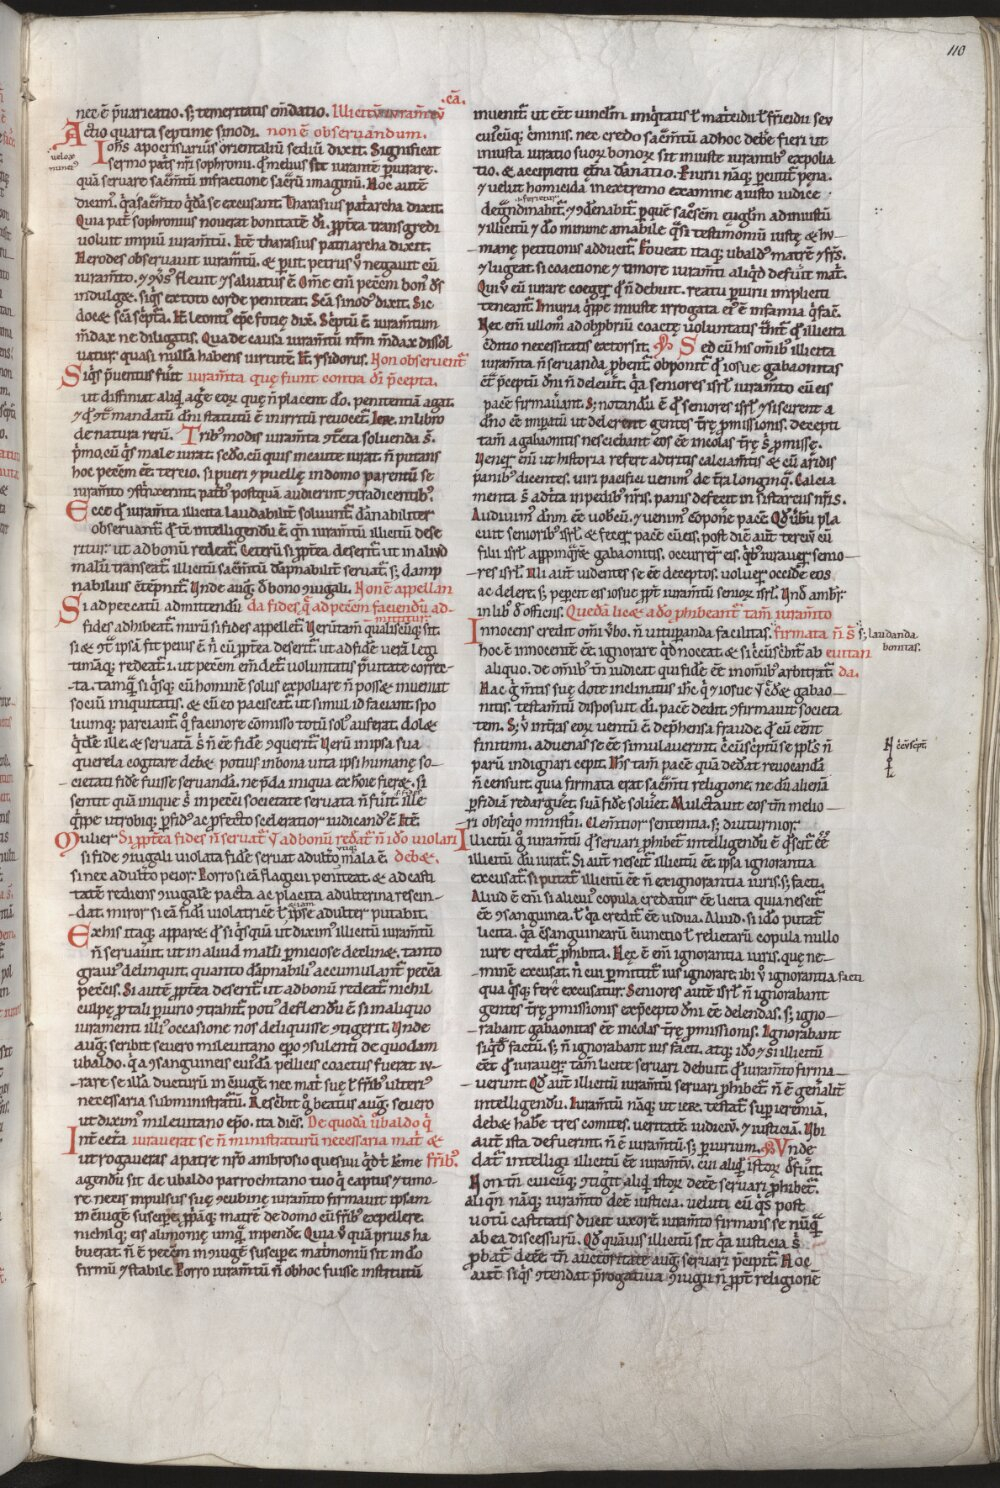 110
nec ē p̄uaricatio. s; temeritatis em̄datio. Illicitū iuram̄tū
Actio quarta septime sinodi. non ē obseruandum.
Ioħs apocrisiarius orientaliū sediū dixit. Significat
sermo pat̄s nr̄i sophronii. q̄ melius sit iurantē p̄iurare.
quā seruare sac̄m̄tū infractione sacrū imaginū. Hoc autē
dicim̄. q̄a sac̄am̄to q̄dā se excusant. Tharasius pat̄archa dixit.
Quia pat̄ sophronius nouerat bonitatē dī. p̄pt̄ea transgredi
uoluit impiū iuram̄tū. Itē tharasius patriarcha dixit.
Herodes obseruauit iuram̄tū. & periit. petrus ů negauit cū
iuram̄to. ⁊ ꝯůs fleuit ⁊ saluatus ē Om̄e em̄ pec̄cm bon̄ ds̄
indulget. siq̄s ex toto corde peniteat. Sc̄a sinod᷒ dixit. Sic
doc& sc̄a sc̄pt̄a. It̄ leonti᷒ ep̄c fotię dix̄. Sc̄ptū ē iuram̄tum
m̄dax ne diligatis. Qua de causa iuram̄tū nr̄m m̄dax dissol
uatur quasi nullā habens uirtutē. It̄. ysidorus. Non obseruent̄
Siq̄s p̄uentus fuīt iuram̄ta quę fiunt contra dī p̄cepta.
ut diffiniat aliq̄ aḡe eorū quę n̄ placent do. penitentiā agat.
⁊ q̄ ꝯt̄ mandatū dn̄i statutū ē in irritū reuocet. Ier̄. in libro
de natura rerū. Trib᷒ modis iuram̄ta ꝯt̄cta soluenda s̄.
p̄mo. cū q̄s male iurat. sc̄do. cū quis incaute iurat. n̄ putans
hoc pec̄cm ēē. tercio. si pueri ⁊ puellę in domo parentū se
iuram̄to ꝯst̄nxerint. pat̄b᷒ postquā audierint ꝯt̄radicentib᷒.
Ecce q̄ iuram̄ta illicita laudabilit̄ soluunt̄. dānabiliter
obseruant̄. q̄ tn̄ intelligendū ē. qn̄ iuram̄tū illicitū dese
ritur. ut ad bonū redeat̄. Ceterū si p̄pt̄ea deserit̄. ut in aliud
malū transeat̄. illicitū sac̄am̄tū dāpnabilit̄ seruat̄. s; damp
nabilius ꝯtēpnit̄. Unde aug᷒. d̄ bono ꝯiugali. Non ē appellan
Si ad peccatū admittendū da fides. q̄ ad pec̄cm faciendū ad-
mittitur.
fides adhibeat̄. mirū si fides appellet̄. Uerūtam̄ qualiscūq; sit.
si & ꝯt̄ ipsā fit. peius ē. n̄ cū p̄pt̄ea deserit̄. ut ad fidē uerā legi
timāq; redeat̄. i. ut pec̄cm em̄det̄. uoluntatis p̄uitate correc
ta. tamq̄ si q̄sq; cū hominē solus expoliare n̄ posset. inueniat
sociū iniquitatis. & cū eo paciscat̄. ut simul id faciant. spo
liumq; parciant̄. q̄ facinore cōmisso totū sol᷒ auferat. dolet
q̄dē ille. & seruatā s̄ n̄ ēē fidē ꝯquerit̄. Uerū in ipsa sua
querela cogitare debet. potius in bona uita ipsi humanę so-
cietati fidē fuisse seruandā. ne p̄da iniqua ex hōie fieret. si
sentit quā inique s̄ in pec̄ci societate seruata n̄ fuit. ille
q̄ppe utrobiq; p̄fid᷒ ac p̄fecto sceleratior iudicand᷒ ē. Itē.
Mulier Si p̄pt̄ea fides n̄ seruat̄ ů ad bonū red̄at̄. n̄ ido uiolari
si fidē ꝯiugali uiolata fidē seruat adult̄o mala ē. debet.
si nec adult̄o peior. Porro si eā flagicii peniteat. & ad casti
tatē rediens ꝯiugalē. pacta ac placita adulterina rescin-
dat. miror si eā fidei uiolatricē ł ipse adulter putabit.
Ex his itaq; apparet. q̄ si q̄squā ut dixim᷒ illicitū iuram̄tū
n̄ seruauīt. ut in aliud malū p̄niciose declinet. tanto
graui᷒ delinquit. quanto dāpnabili᷒ accumulant̄ pec̄ca
pec̄cis. Si autē p̄pt̄ea deserit̄. ut ad bonū redeat̄. nichil
culpę p̄ tali p̄iurio ꝯtrahit̄. poti᷒ deflendū ē si in aliquo
iuramenti illi᷒ occasione nos deliquisse ꝯtigerit. Unde
aug᷒. scribit seuero mileuitano ep̄o ꝯsulenti de quodam
ubaldo. q̄a ꝯsanguineis cui᷒dā pellicis coactus fuerat iu-
rare se illā ducturū in ꝯiugē. nec mat̄ suę ł fr̄ib᷒ ulteri᷒
necessaria subministratū. Resc̄bit g̊ beatus aug᷒. seuero
ut dixim᷒ mileuitano ep̄o. ita dicēs. De quodā ubaldo q̄
Int̄ cet̄a iurauerat se n̄ ministraturū necessaria mat̄ &
ut rogaueras a patre nr̄o ambrosio quesiui q̄d t̄ carme fr̄ib᷒.
agendū sit de ubaldo parrochitano tuo q̄ captus ⁊ timo-
re necis impulsus suę ꝯcubinę iuram̄to firmauit ipsam
in ꝯiugē suscipe. p̄p̄āq; matrē de domo cū fr̄ib᷒ expellere.
nichilq; eis alimonię umq̄ impendet. Quia ů quā prius ha
buerat. n̄ ē pec̄cm in ꝯiugē suscipe. mat̄moniū sit in do
firmū ⁊ stabile. Porro iuram̄tū n̄ ob hoc fuisse institutū
inuenit̄. ut eēt uinclm̄ iniq̄tatis ł matricidii ł fr̄icidii seu
cui᷒cūq; c̄minis. nec credo sac̄m̄tū ad hoc debē fieri ut
iniusta iuratio suorū bonorū sit iniuste iurantib᷒ expolia
tio. & accipienti et̄na dānatio. Piuri nāq; p̄mittit̄ pęna.
⁊ uelut homicida in extremo examine a iusto iudice
deꝯdīnabit̄. ⁊ ꝯdēnabit̄. p̄ quē sac̄osc̄m euglm̄ ad iniustū
⁊ illicitū ⁊ do minime amabile q̄si testimoniū iustę & hu-
manę petitionis adducit̄. Foueat itaq; ubald᷒ matrē ⁊ fr̄s.
⁊ lugeat si coactione ⁊ timore iuram̄ti aliq̄d defuit mat̄.
Qui ů eū iurare coeger̄ q̄ n̄ debuit. reatu p̄iurii impliciti
teneant̄. Iniuria q̄ppe iniuste irrogata ei᷒ ē infamia q̄ facit̄.
Nec em̄ ullom̄ ad obprobriū coactę uoluntatis t̄hit̄. q̄ illicita
ꝯditio necessitatis extorsit. Sed cū his om̄ib᷒ illicita
iuram̄ta n̄ seruanda p̄bent̄. obponit̄ q̄ iosue gabaonitas
ꝯt̄ p̄ceptū dn̄i n̄ deleuit. q̄a seniores isrl̄ iuram̄to cū eis
pacē firmauerant. S; notandū ē. q̄ seniores isrl̄ ⁊ si scirent a
dn̄o ēē imp̄atū ut delerent gentes tr̄ę p̄missionis. decepti
tam̄ a gabaonitis nesciebant eos ēē incolas tr̄ę s̄ p̄missę.
Uener̄ em̄ ut historia refert adtritis calciam̄tis & cū aridis
panib᷒ dicentes. uiri pacifici uenim᷒ de t̄ra longinq̄. Calcia
menta s̄ adt̄ta in pedib᷒ nr̄is. panis defecit in sistarciis nr̄is.
Audiuim᷒ dn̄m ēē uobcū. ⁊ uenim᷒ ꝯponere pacē. Qd̄ ubū pla
cuit seniorib᷒ isrl̄. & fecer̄ pacē cū eis. post die aut̄ terciū cū
filii isrl̄ appinq̄rēt gabaonitis. occurrer̄ eis. q̄b᷒ iurauer̄ senio-
res isrl̄. Illi aut̄ uidentes se ēē deceptos. uoluer̄ occidē eos
ac delere. s; pepercit eis iosue p̄pt̄ iuram̄tū seniorū isrl̄. Und̄ amb᷒:
in lib᷒ d̄ officiis. Quedā licet a do p̄hibeant̄. tam̄ iuram̄to
Innocens credit om̄i ůbo. n̄ uituperanda facilitas. firmata n̄ s̄ s; laudanda
bonitas.
hoc ē innocentē ēē. ignorare q̄d noceat. & si c̄cūsc̄bit̄ ab euitan
aliquo. de omīb᷒ tn̄ iudicat qui fidē ēē in omīb᷒ arbitrat̄. da.
Hac g̊ m̄tis suę dote inclinatus
nitis. testam̄tū disposuit. dī. pacē dedit. ⁊ firmauit societa
tem. S; ů int̄ras eorū uentū ē. dep̄hensa fraude. q̄ cū eēnt
finitimi. aduenas se ēē simulauerint̄
parū indignari cepit. Ihs̄ tam̄ pacē quā dedat reuocandā
n̄ censuit. quia firmata erat sac̄m̄ti religione. ne dū alienā
p̄fidiā redargueret̄. suā fidē solueret̄. Mulctauit eos tm̄ melio
ri obseq̄o ministīi. Clem̄tior sententia. s; diuturnior.
Illicitū g̊ iuram̄tū q̄ seruari p̄hibet̄. intelligendū ē q̄ scit̄ ēē
illicitū dū iurat̄. Si aut̄ nescit̄ illicitū ēē. ipsa ignorantia
excusat̄. si putat̄ illicitū ēē n̄ ex ignorantia iuris. s; facti.
Aliud ē em̄ si alicui᷒ copula credatur ēē licita quia nescit̄
ēē ꝯsanguinea. ł q̄a credit̄ ēē uidua. Aliud. si ido putat̄
licita. q̄a ꝯsanguinearū cunctio ł relictarū copula nullo
iure credat̄ p̄hibita. Hęc ē em̄ ignorantia iuris. que ne-
minē excusat. n̄ cui p̄mittit̄ ius ignorare. ibi ů ignorantia facti
qua q̄sq; fere excusatur. Seniores autē isrl̄ n̄ ignorabant
gentes tr̄ę p̄missionis ex p̄cepto dn̄i ēē delendas. s; igno-
rabant gabaonitas ēē incolas tr̄ę p̄missionis. Ignorabant
siq̄d factū. s; n̄ ignorabant ius facti. atq; ido ⁊ si illicitū
ēēt q̄ iurauer̄. tam̄ licite seruari debuit. q̄ iuram̄to firma-
uerunt. Qd̄ aut̄ illicitū iuram̄tū seruari p̄hibet̄. n̄ ē gen̄alit̄
intelligendū. Iuram̄tū nāq; ut ier̄. testat̄ sup̄ ieremiā.
debet habē tres comites. ueritatē. iudiciū. ⁊ iusticiā. Ubi
aut̄ ista defuerint. n̄ ē iuram̄tū. s; p̄iurium. Unde
dat̄ intelligi illicitū ēē iuram̄tū. cui aliq̄ istorū defuīt.
Non tn̄ cuicūq; ꝯtigit aliq̄ istorū deesse seruari p̄hibet̄.
aliqn̄ nāq; iuram̄to deēt iusticia. ueluti cū q̄s post
uotū castitatis ducit uxorē. iuram̄to firmans se nūq̄
ab ea discessurū. Qd̄ quāuis illicitū sit. q̄a iusticia s̄
p̄bat̄ deēē. tn̄ auctoritate aug᷒. seruari p̄cipit̄. Hoc
aut̄ siq̄s ꝯtendat p̄rogatiua ꝯiugii n̄ p̄pt̄ religionē